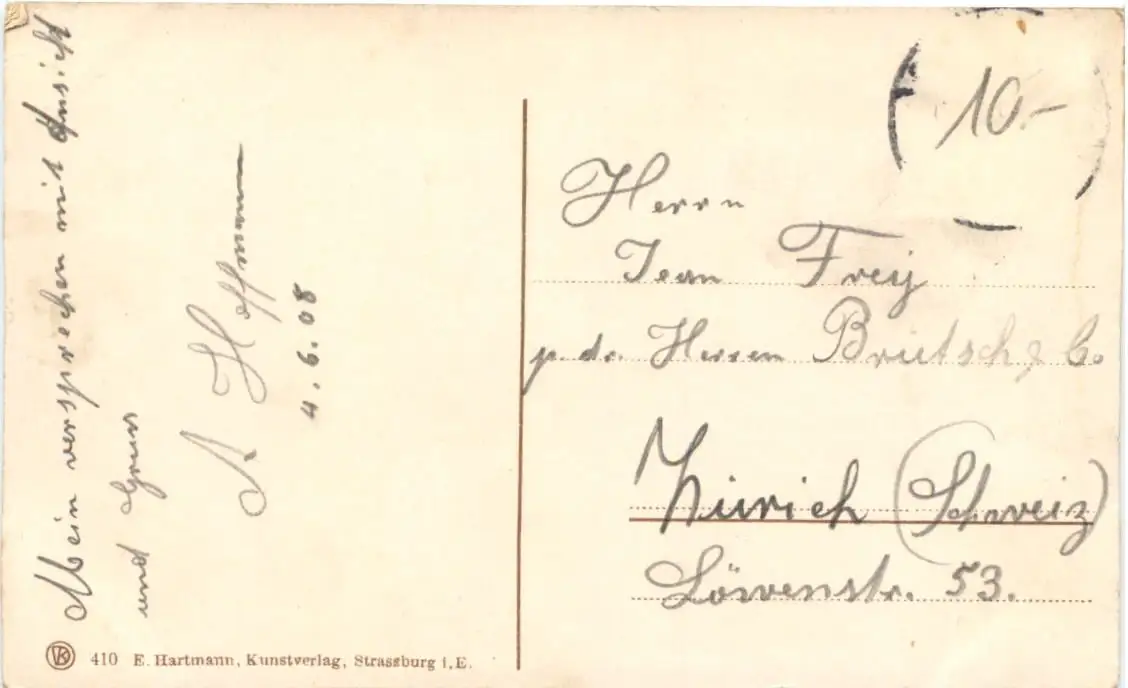 Mein versprechen mit Ansicht
und Gruss
A Hoffmann
4.6.08
10.-
Herrn
Jean Frey
p. ad. Herren Brütsch & C.
Zürich (Schweiz)
Löwenstr. 53.
410 E. Hartmann, Kunstverlag, Strassburg i.E.